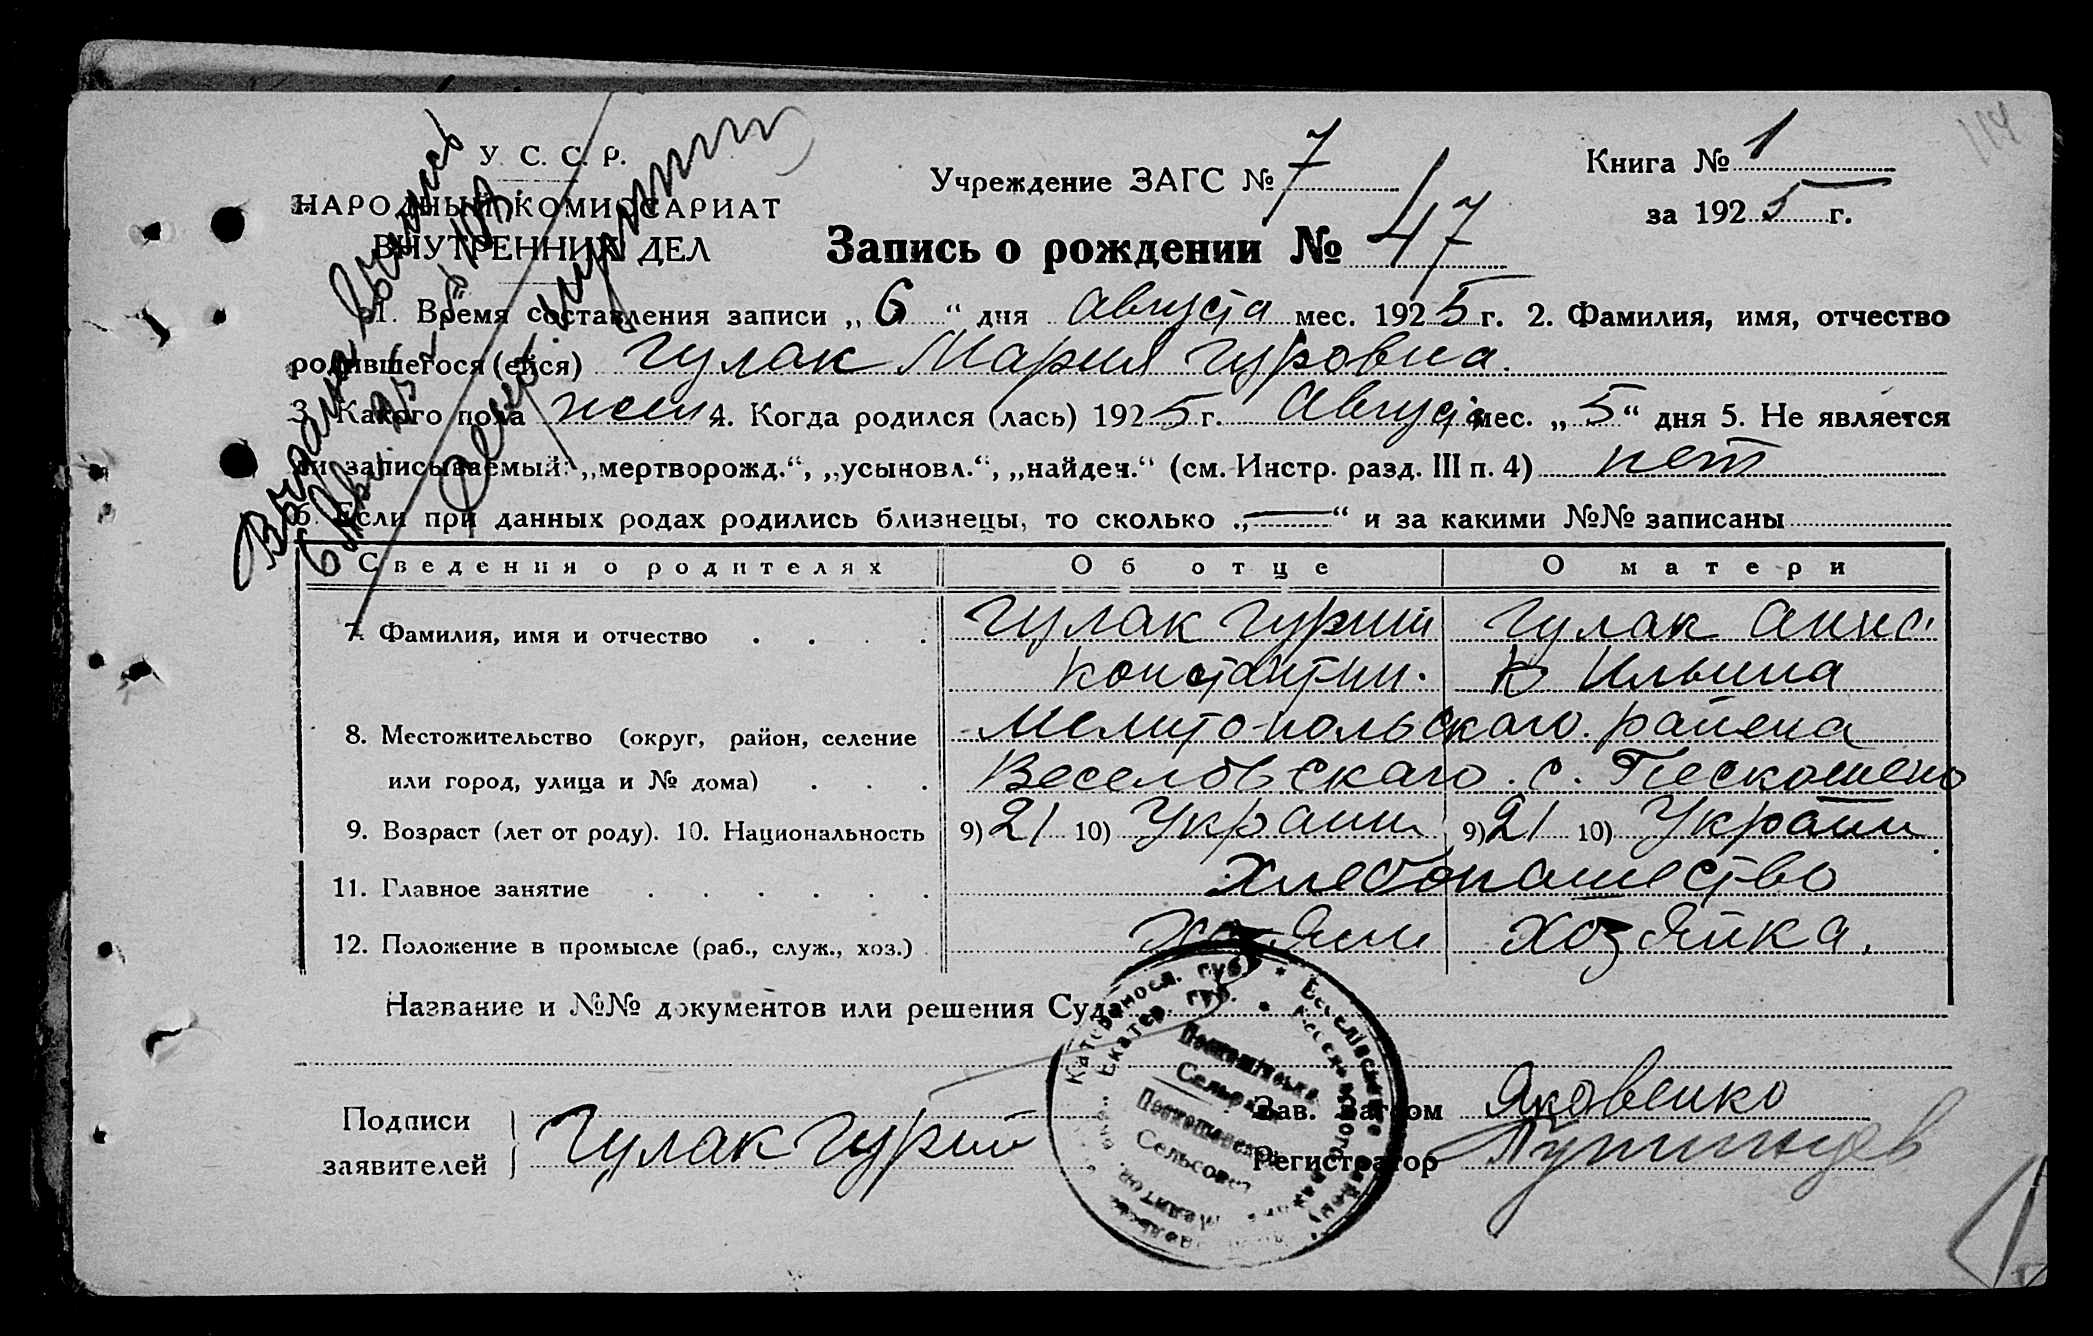 114
У. С. С. Р.
НАРОДНЫЙ КОМИССАРИАТ
ВНУТРЕННИХ ДЕЛ
Учреждение ЗАГС № 7
Книга № 1
за 1925 г.
Запись о рождении № 47
1. Время составления записи „ 6 “ дня августа мес. 1925 г. 2. Фамилия, имя, отчество
родившегося (ейся) Гулак Мария Гуровна.
3. Какого пола жен 4. Когда родился (лась) 1925 г. Август мес. „ 5 “ дня 5. Не является
ли записываемый: „мертворожд.“, „усыновл.“, „найден.“ (см. Инстр. разд. III п. 4) нет
6. Если при данных родах родились близнецы, то сколько „ — “ и за какими №№ записаны
Сведения о родителях Об отце О матери
7. Фамилия, имя и отчество Гулак Гурий Гулак Анна
Константин. Ильина
8. Местожительство (округ, район, селение Мелитопольскаго района
или город, улица и № дома) Веселовскаго. с. Пескошено
9. Возраст (лет от роду). 10. Национальность 9) 21 10) Украин 9) 21 10) Украин
11. Главное занятие Хлебопашество
12. Положение в промысле (раб., служ., хоз.) хозяин хозяйка.
Название и №№ документов или решения Суда
Подписи
заявителей Гулак Гурий
Зав. Загсом Яковенко
Регистратор
Сельсовет